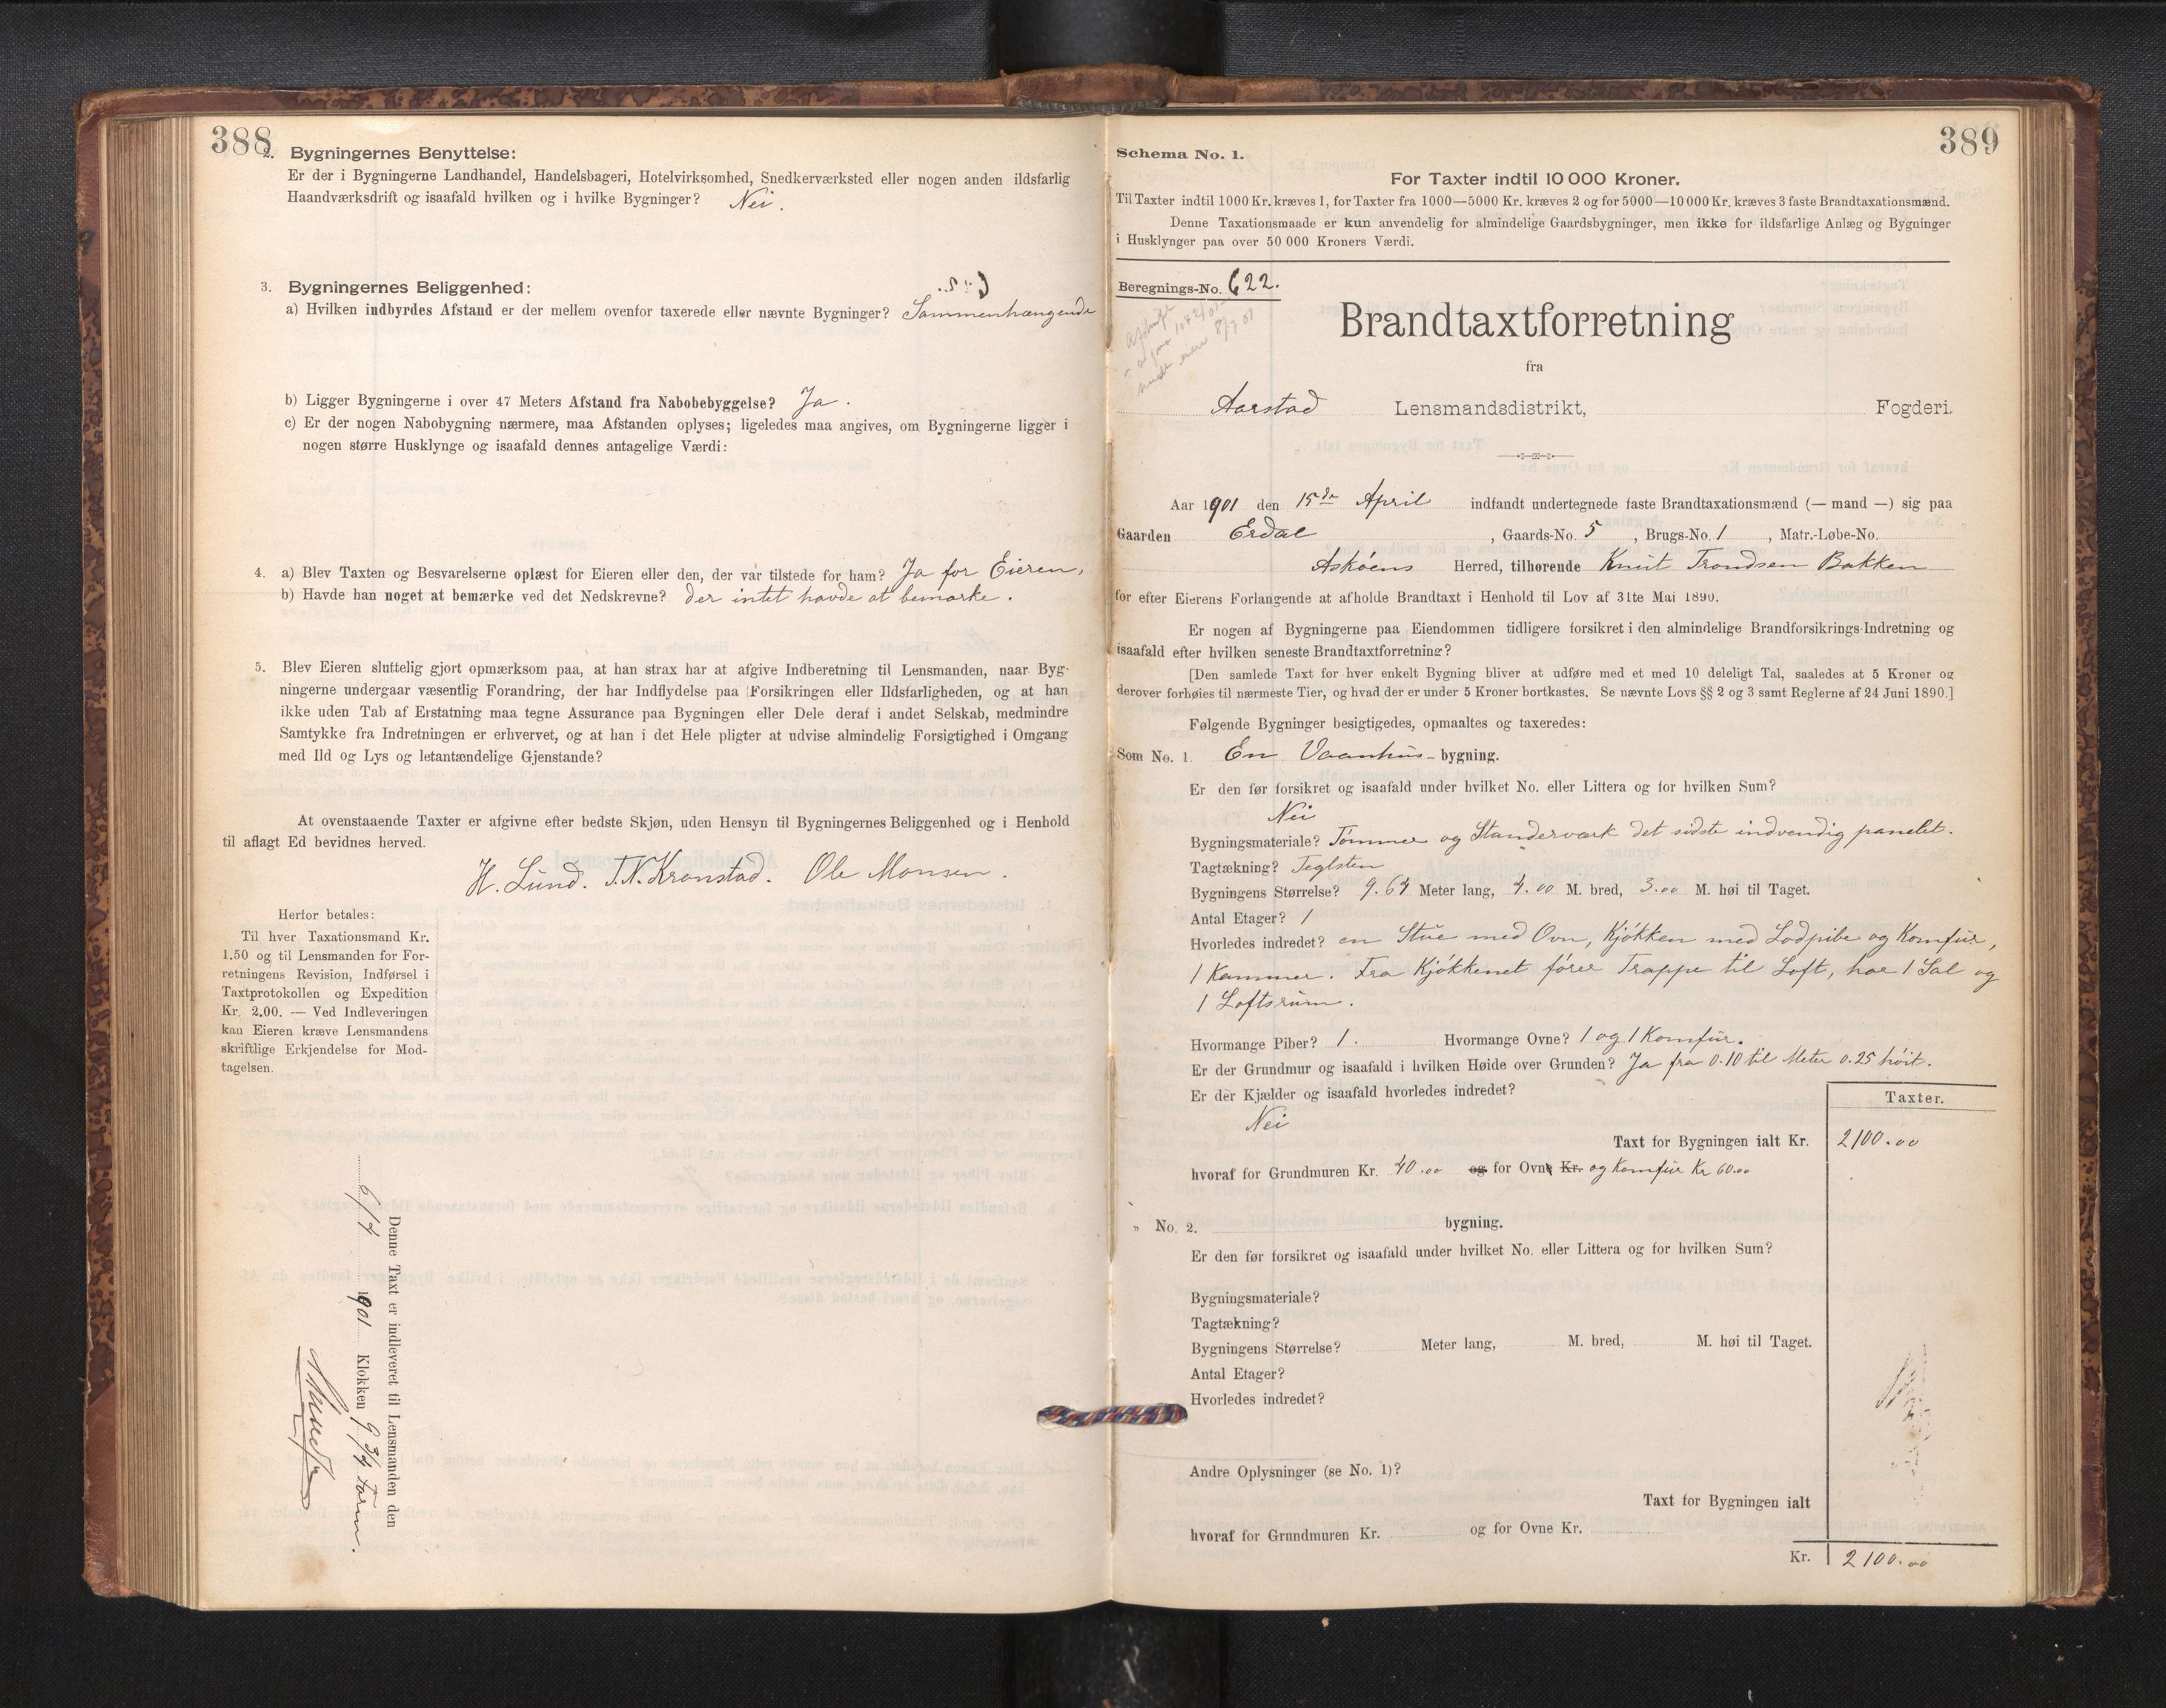 388
2. Bygningernes Benyttelse:
Er der i Bygningerne Landhandel, Handelsbageri, Hotelvirksomhed, Snedkerværksted eller nogen anden ildsfarlig
Haandværksdrift og isaafald hvilken og i hvilke Bygninger? Nei.
3. Bygningernes Beliggenhed:
a) Hvilken indbyrdes Afstand er der mellem ovenfor taxerede eller nævnte Bygninger? Sammenhængende
b) Ligger Bygningerne i over 47 Meters Afstand fra Nabobebyggelse? Ja.
c) Er der nogen Nabobygning nærmere, maa Afstanden oplyses; ligeledes maa angives, om Bygningerne ligger i
nogen større Husklynge og isaafald dennes antagelige Værdi:
4. a) Blev Taxten og Besvarelserne oplæst for Eieren eller den, der var tilstede for ham? Ja for Eieren,
b) Havde han noget at bemærke ved det Nedskrevne? der intet havde at bemærke.
5. Blev Eieren sluttelig gjort opmærksom paa, at han strax har at afgive Indberetning til Lensmanden, naar Byg-
ningerne undergaar væsentlig Forandring, der har Indflydelse paa Forsikringen eller Ildsfarligheden, og at han
ikke uden Tab af Erstatning maa tegne Assurance paa Bygningen eller Dele deraf i andet Selskab, medmindre
Samtykke fra Indretningen er erhvervet, og at han i det Hele pligter at udvise almindelig Forsigtighed i Omgang
med Ild og Lys og letantændelige Gjenstande?
At ovenstaaende Taxter er afgivne efter bedste Skjøn, uden Hensyn til Bygningernes Beliggenhed og i Henhold
til aflagt Ed bevidnes herved.
H. Lund. T.N. Kronstad. Ole Monsen.
Herfor betales:
Til hver Taxationsmand Kr.
1.50 og til Lensmanden for For-
retningens Revision, Indførsel i
Taxtprotokollen og Expedition
Kr. 2.00. — Ved Indleveringen
kan Eieren kræve Lensmandens
skriftlige Erkjendelse for Mod-
tagelsen.
Denne Taxt er indleveret til Lensmanden den
6/7 1901 Klokken 9 3/4 Form.
389
Schema No. 1.
For Taxter indtil 10 000 Kroner.
Til Taxter indtil 1000 Kr. kræves 1, for Taxter fra 1000—5000 Kr. kræves 2 og for 5000—10 000 Kr. kræves 3 faste Brandtaxationsmænd.
Denne Taxationsmaade er kun anvendelig for almindelige Gaardsbygninger, men ikke for ildsfarlige Anlæg og Bygninger
i Husklynger paa over 50 000 Kroners Værdi.
Beregnings-No. 622.
Brandtaxtforretning
fra
Aarstad Lensmandsdistrikt, Fogderi.
Aar 1901 den 15de April indfandt undertegnede faste Brandtaxationsmænd (— mand —) sig paa
Gaarden Erdal, Gaards-No. 5, Brugs-No. 1, Matr.-Løbe-No.
Askøens Herred, tilhørende Knut Trondsen Bakken
for efter Eierens Forlangende at afholde Brandtaxt i Henhold til Lov af 31te Mai 1890.
Er nogen af Bygningerne paa Eiendommen tidligere forsikret i den almindelige Brandforsikrings-Indretning og
isaafald efter hvilken seneste Brandtaxtforretning?
[Den samlede Taxt for hver enkelt Bygning bliver at udføre med et med 10 deleligt Tal, saaledes at 5 Kroner og
derover forhøies til nærmeste Tier, og hvad der er under 5 Kroner bortkastes. Se nævnte Lovs §§ 2 og 3 samt Reglerne af 24 Juni 1890.]
Følgende Bygninger besigtigedes, opmaaltes og taxeredes:
Som No. 1. En Vaanhus-bygning.
Er den før forsikret og isaafald under hvilket No. eller Littera og for hvilken Sum?
Nei
Bygningsmateriale? Tømmer og Standerværk det sidste indvendig panelet.
Tagtækning? Teglsten
Bygningens Størrelse? 9.64 Meter lang, 4.00 M. bred, 3.00 M. høi til Taget.
Antal Etager? 1
Hvorledes indredet? en Stue med Ovn, Kjøkken med Lodpibe og Komfur,
1 Kammer. Fra Kjøkkenet fører Trappe til Loft, har 1 Sal og
1 Loftsrum.
Hvormange Piber? 1. Hvormange Ovne? 1 og 1 Komfur.
Er der Grundmur og isaafald i hvilken Høide over Grunden? Ja fra 0.10 til Meter 0.25 høit.
Er der Kjælder og isaafald hvorledes indredet?
Nei
Taxter.
Taxt for Bygningen ialt Kr. 2100.00
hvoraf for Grundmuren Kr. 40.00 og for Ovne Kr. og Komfur Kr 60.00
„ No. 2. bygning.
Er den før forsikret og isaafald under hvilket No. eller Littera og for hvilken Sum?
Bygningsmateriale?
Tagtækning?
Bygningens Størrelse? Meter lang, M. bred, M. høi til Taget.
Antal Etager?
Hvorledes indredet?
Andre Oplysninger (se No. 1)?
Taxt for Bygningen ialt
hvoraf for Grundmuren Kr. og for Ovne Kr.
Kr. 2100.00